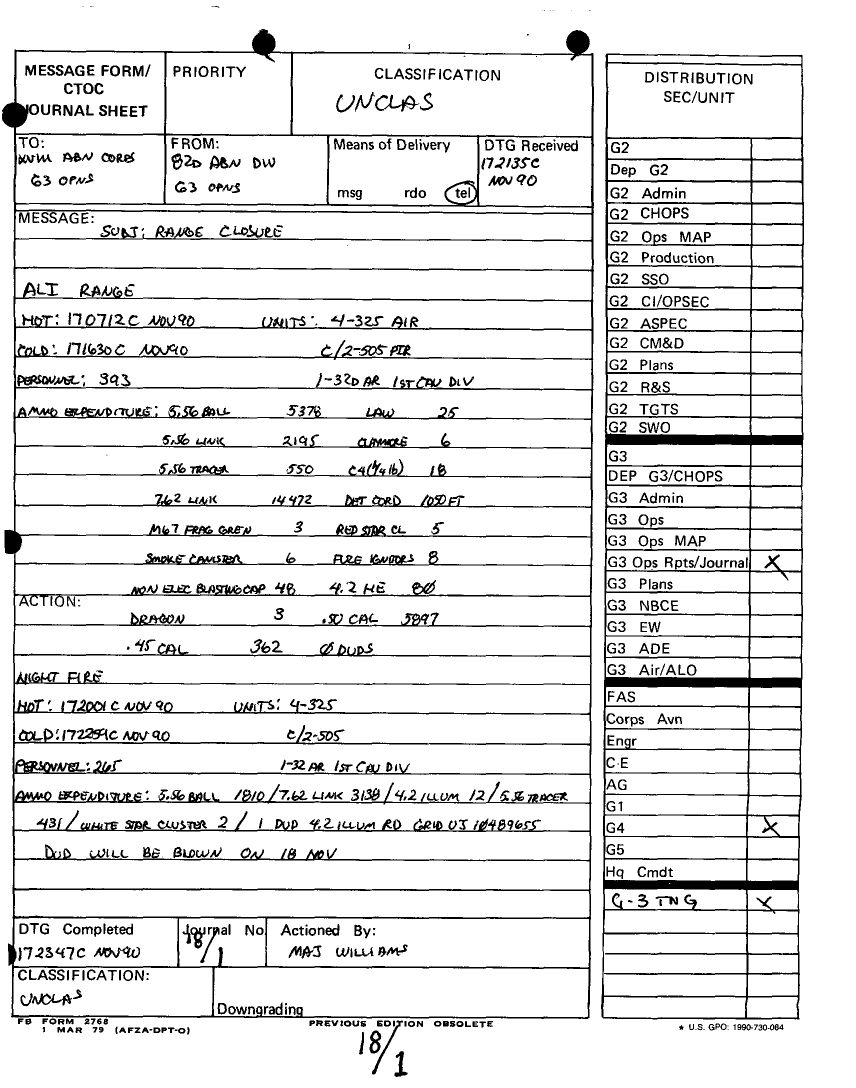 MESSAGE FORM/ CTOC JOURNAL SHEET
PRIORITY
CLASSIFICATION
UNCLAS
TO:
XVIII ABN CORPS
G3 OPNS
FROM:
82D ABN DIV
G3 OPNS
Means of Delivery
msg rdo tel
DTG Received
172135C
NOV 90
MESSAGE:
SUBJ: RANGE CLOSURE
ALI RANGE
HOT: 170712C NOV90 UNITS: 4-325 AIR
COLD: 171630C NOV90 C/2-505 PIR
PERSONNEL: 393 1-32D AR 1ST CAV DIV
AMMO EXPENDITURE: 5.56 BALL 5378 LAW 25
5.56 LINK 2195 CLAYMORE 6
5.56 TRACER 550 C4(1/4 lb) 18
7.62 LINK 14472 DET CORD 1050 FT
M67 FRAG GREN 3 RED STAR CL 5
SMOKE CANISTER 6 FUZE IGNITORS 8
NON ELEC BLASTING CAP 48 4.2 HE 80
ACTION:
DRAGON 3 .50 CAL 5897
.45 CAL 362 Ø DUDS
NIGHT FIRE
HOT: 172001C NOV 90 UNITS: 4-325
COLD: 172259C NOV 90 C/2-505
PERSONNEL: 265 1-32 AR 1ST CAV DIV
AMMO EXPENDITURE: 5.56 BALL 1810/7.62 LINK 3138/4.2 ILLUM 12/5.56 TRACER
431/WHITE STAR CLUSTER 2/1 DUD 4.2 ILLUM RD GRID UJ 10489655
DUD WILL BE BLOWN ON 18 NOV
DTG Completed
172347C NOV90
Journal No
18/1
Actioned By:
MAJ WILLIAMS
CLASSIFICATION:
UNCLAS
Downgrading
FB FORM 2768
1 MAR 79 (AFZA-DPT-O)
PREVIOUS EDITION OBSOLETE
18/1
DISTRIBUTION
SEC/UNIT
G2
Dep G2
G2 Admin
G2 CHOPS
G2 Ops MAP
G2 Production
G2 SSO
G2 CI/OPSEC
G2 ASPEC
G2 CM&D
G2 Plans
G2 R&S
G2 TGTS
G2 SWO
G3
DEP G3/CHOPS
G3 Admin
G3 Ops
G3 Ops MAP
G3 Ops Rpts/Journal X
G3 Plans
G3 NBCE
G3 EW
G3 ADE
G3 Air/ALO
FAS
Corps Avn
Engr
C-E
AG
G1
G4 X
G5
Hq Cmdt
G-3 TNG X
★ U.S. GPO: 1990-730-064